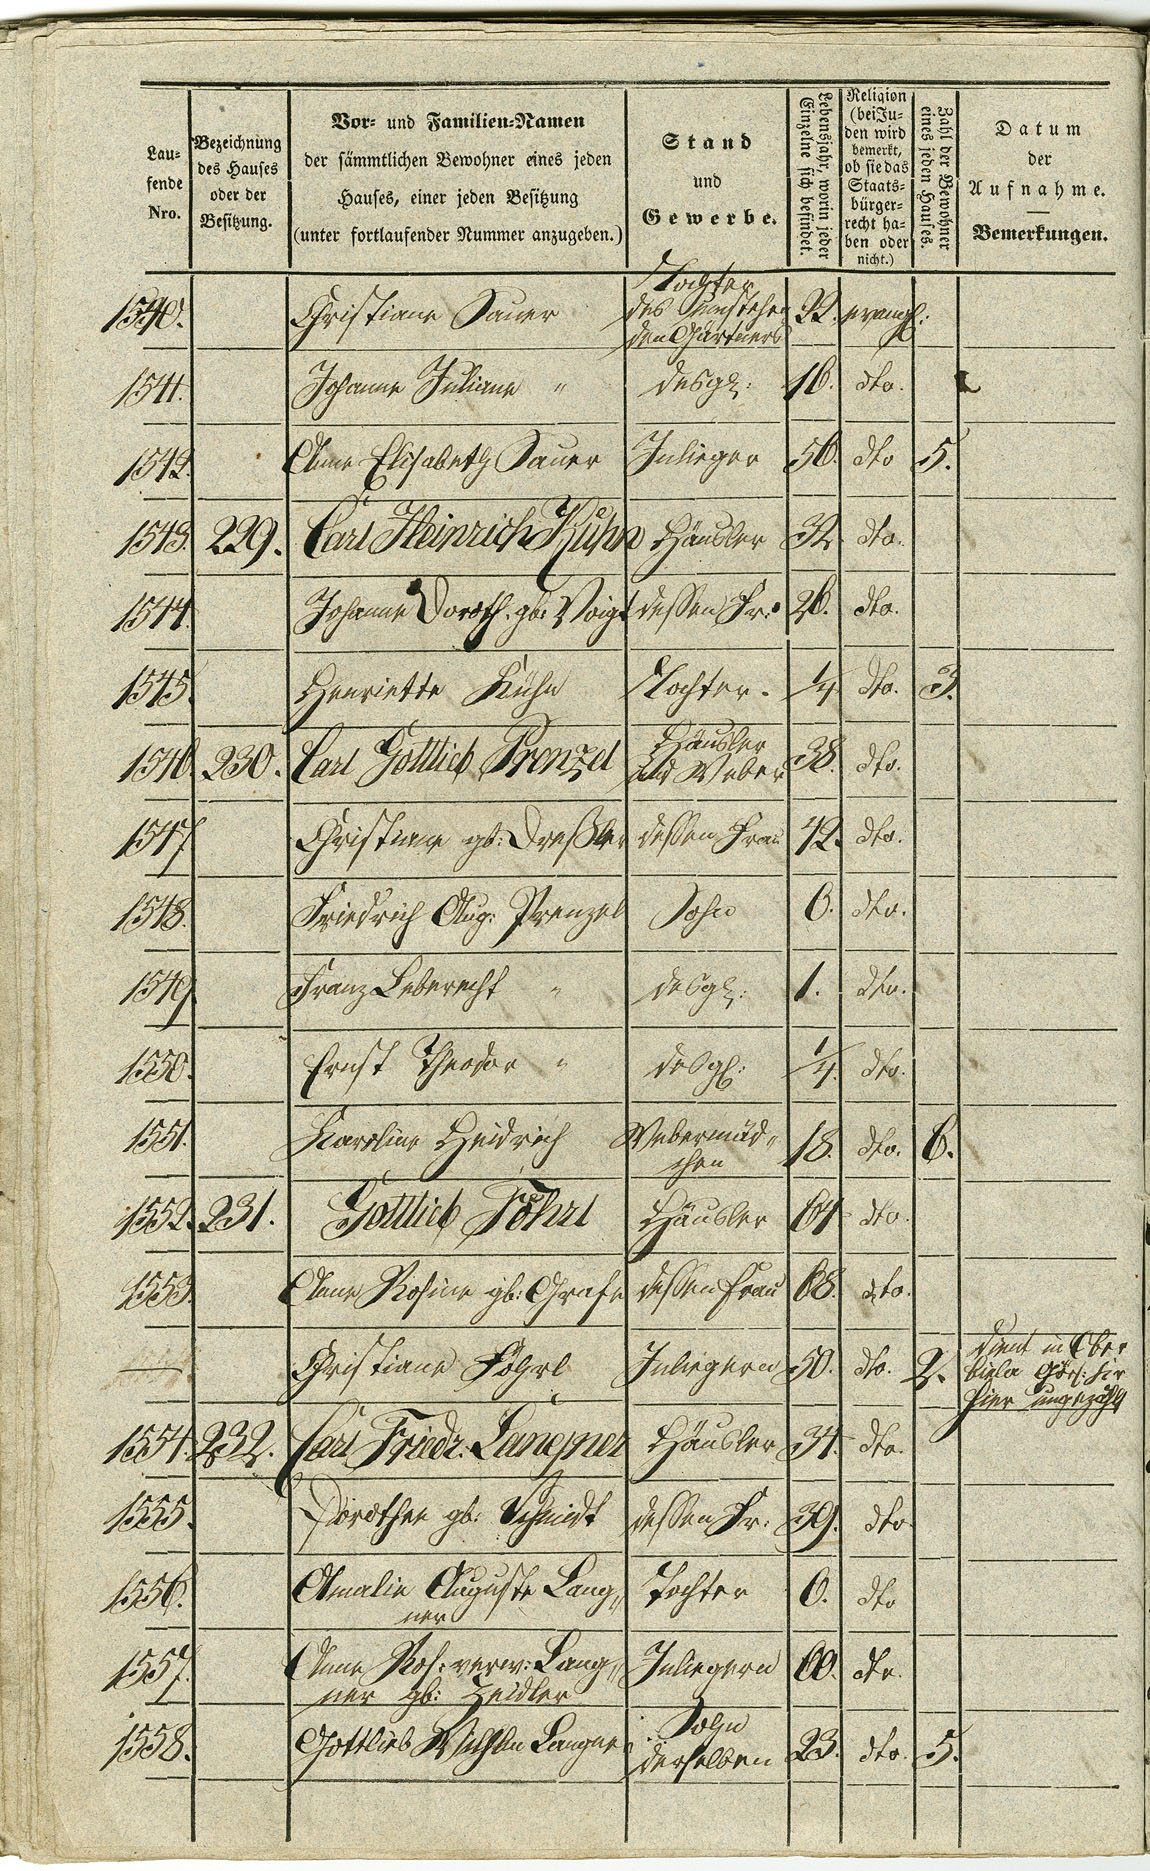 Lau-
fende
Nro.
Bezeichnung
des Hauses
oder der
Besitzung.
Vor- und Familien-Namen
der sämmtlichen Bewohner eines jeden
Hauses, einer jeden Besitzung
(unter fortlaufender Nummer anzugeben.)
Stand
und
Gewerbe.
Lebensjahr, worin jeder
Einzelne sich befindet.
Religion
(bei Ju-
den wird
bemerkt,
ob sie das
Staats-
bürger-
recht ha-
ben oder
nicht.)
Zahl der Bewohner
eines jeden Hauses.
Datum
der
Aufnahme.
Bemerkungen.
Tochter
des Umstehen
1540. Christiane Sauer 22. evangl:
den Gärtners
1541. Johanne Juliane " desgl: 16. dto.
1542. Anne Elisabeth Sauer Inlieger 56. dto 5.
1543. 229. Carl Heinrich Kühn Häusler 32. dto.
1544. Johanne Doroth. gb: Voigt dessen Fr: 26. dto.
1545. Henriette Kühn Tochter. 1/4 dto. 3.
1546. 230. Carl Gottlieb Prenzel Häusler 38. dto.
und Weber
1547. Christiane gb: Dreßler dessen Frau 42. dto.
1548. Friedrich Aug: Prenzel Sohn 6. dto.
1549. Franz Leberecht " desgl: 1. dto.
1550. Ernst Theodor " desgl: 1/4. dto.
1551. Karoline Heidrich Webermäd- 18. dto. 6.
chen
1552. 231. Gottlieb Föhrl Häusler 64 dto.
1553. Anne Rosine gb: Grafe dessen Frau 68. dto.
dient in Ober
— Christiane Föhrl Inliegern 50. dto. 2. biela
hier ungezählt
1554. 232. Carl Friedr. Langner Häusler 34. dto.
1555. Dorothee gb: Schmidt dessen Fr: 39. dto
1556. Amalie Auguste Lang- Tochter 6. dto
ner
1557. Anne Ros: verw: Lang- Inliegern 60. dto.
ner gb: Heidler
Sohn
1558. Gottlieb Wilhlm Langner 23. dto. 5.
derselben